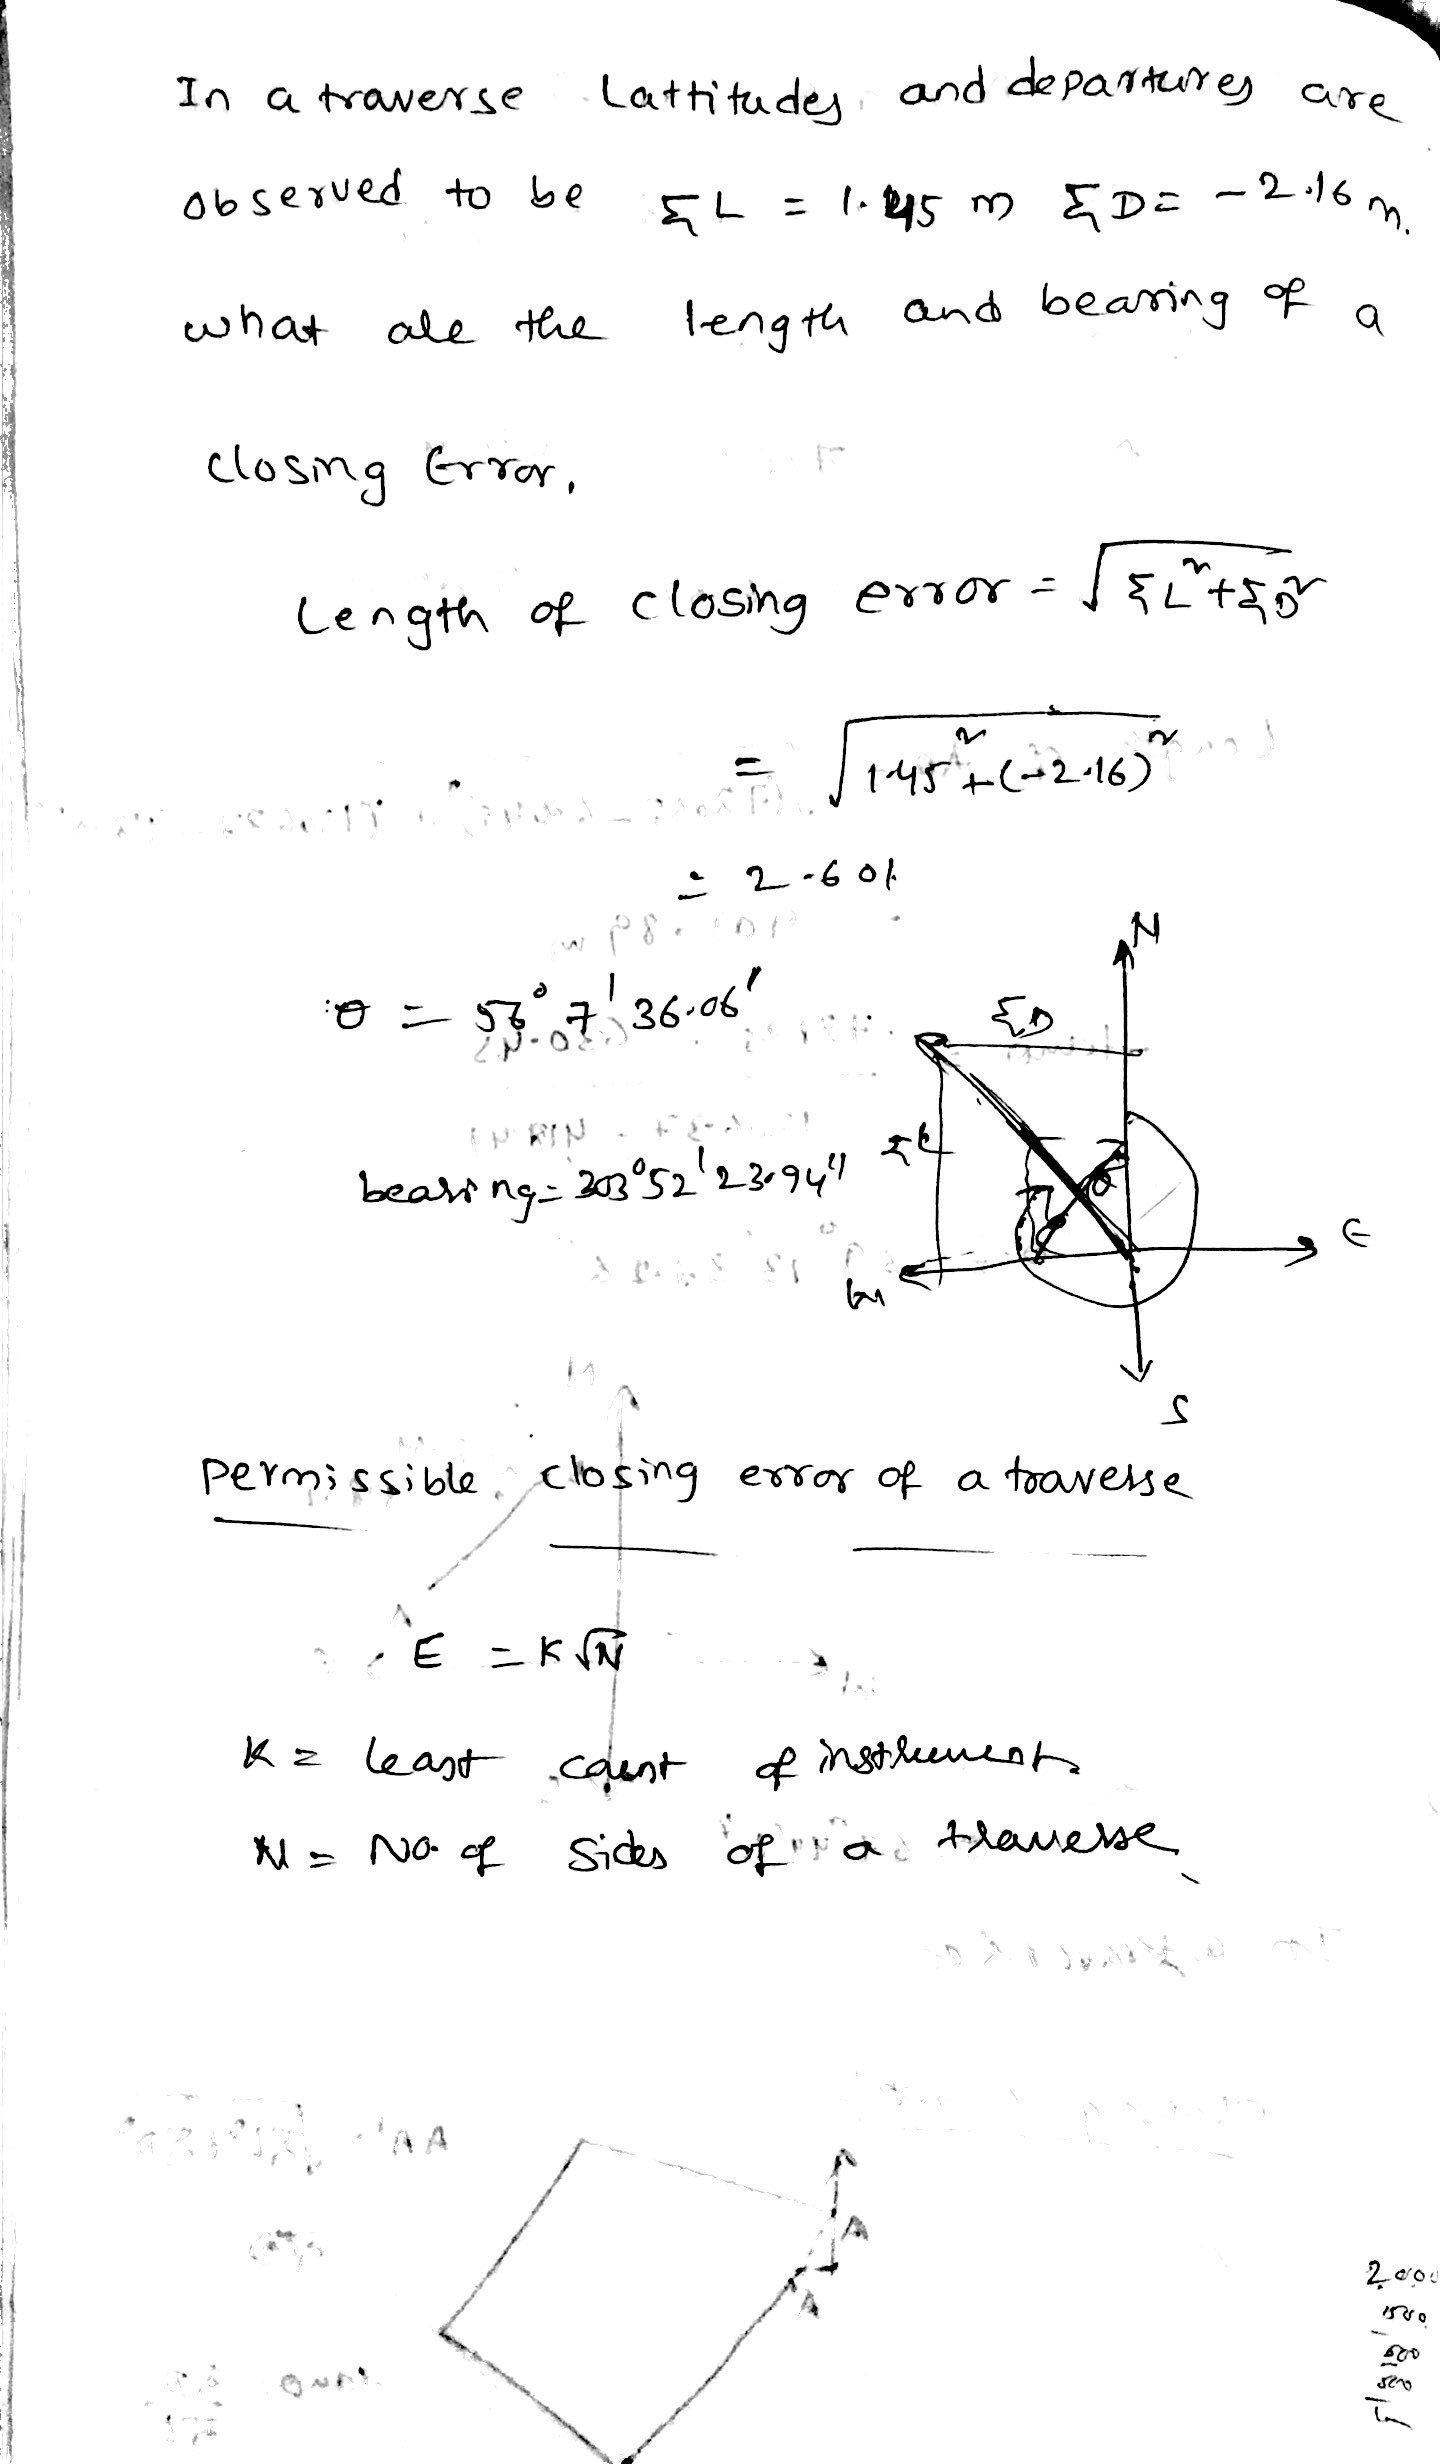 In a traverse Lattitudes and departures are
observed to be ΣL = 1.45 m ΣD = -2.16 m.
what are the length and bearing of a
closing Error,
Length of closing error = √ΣL²+ΣD²
= √1.45²+(-2.16)²
= 2.601
N
θ = 56° 7' 36.06'
ΣD
bearing = 303°52'23.94"
ΣL
θ
E
W
S
Permissible closing error of a traverse
E = K√N
K = least count of instrument
N = No. of sides of a traverse
A
A
2000
1500
500
500